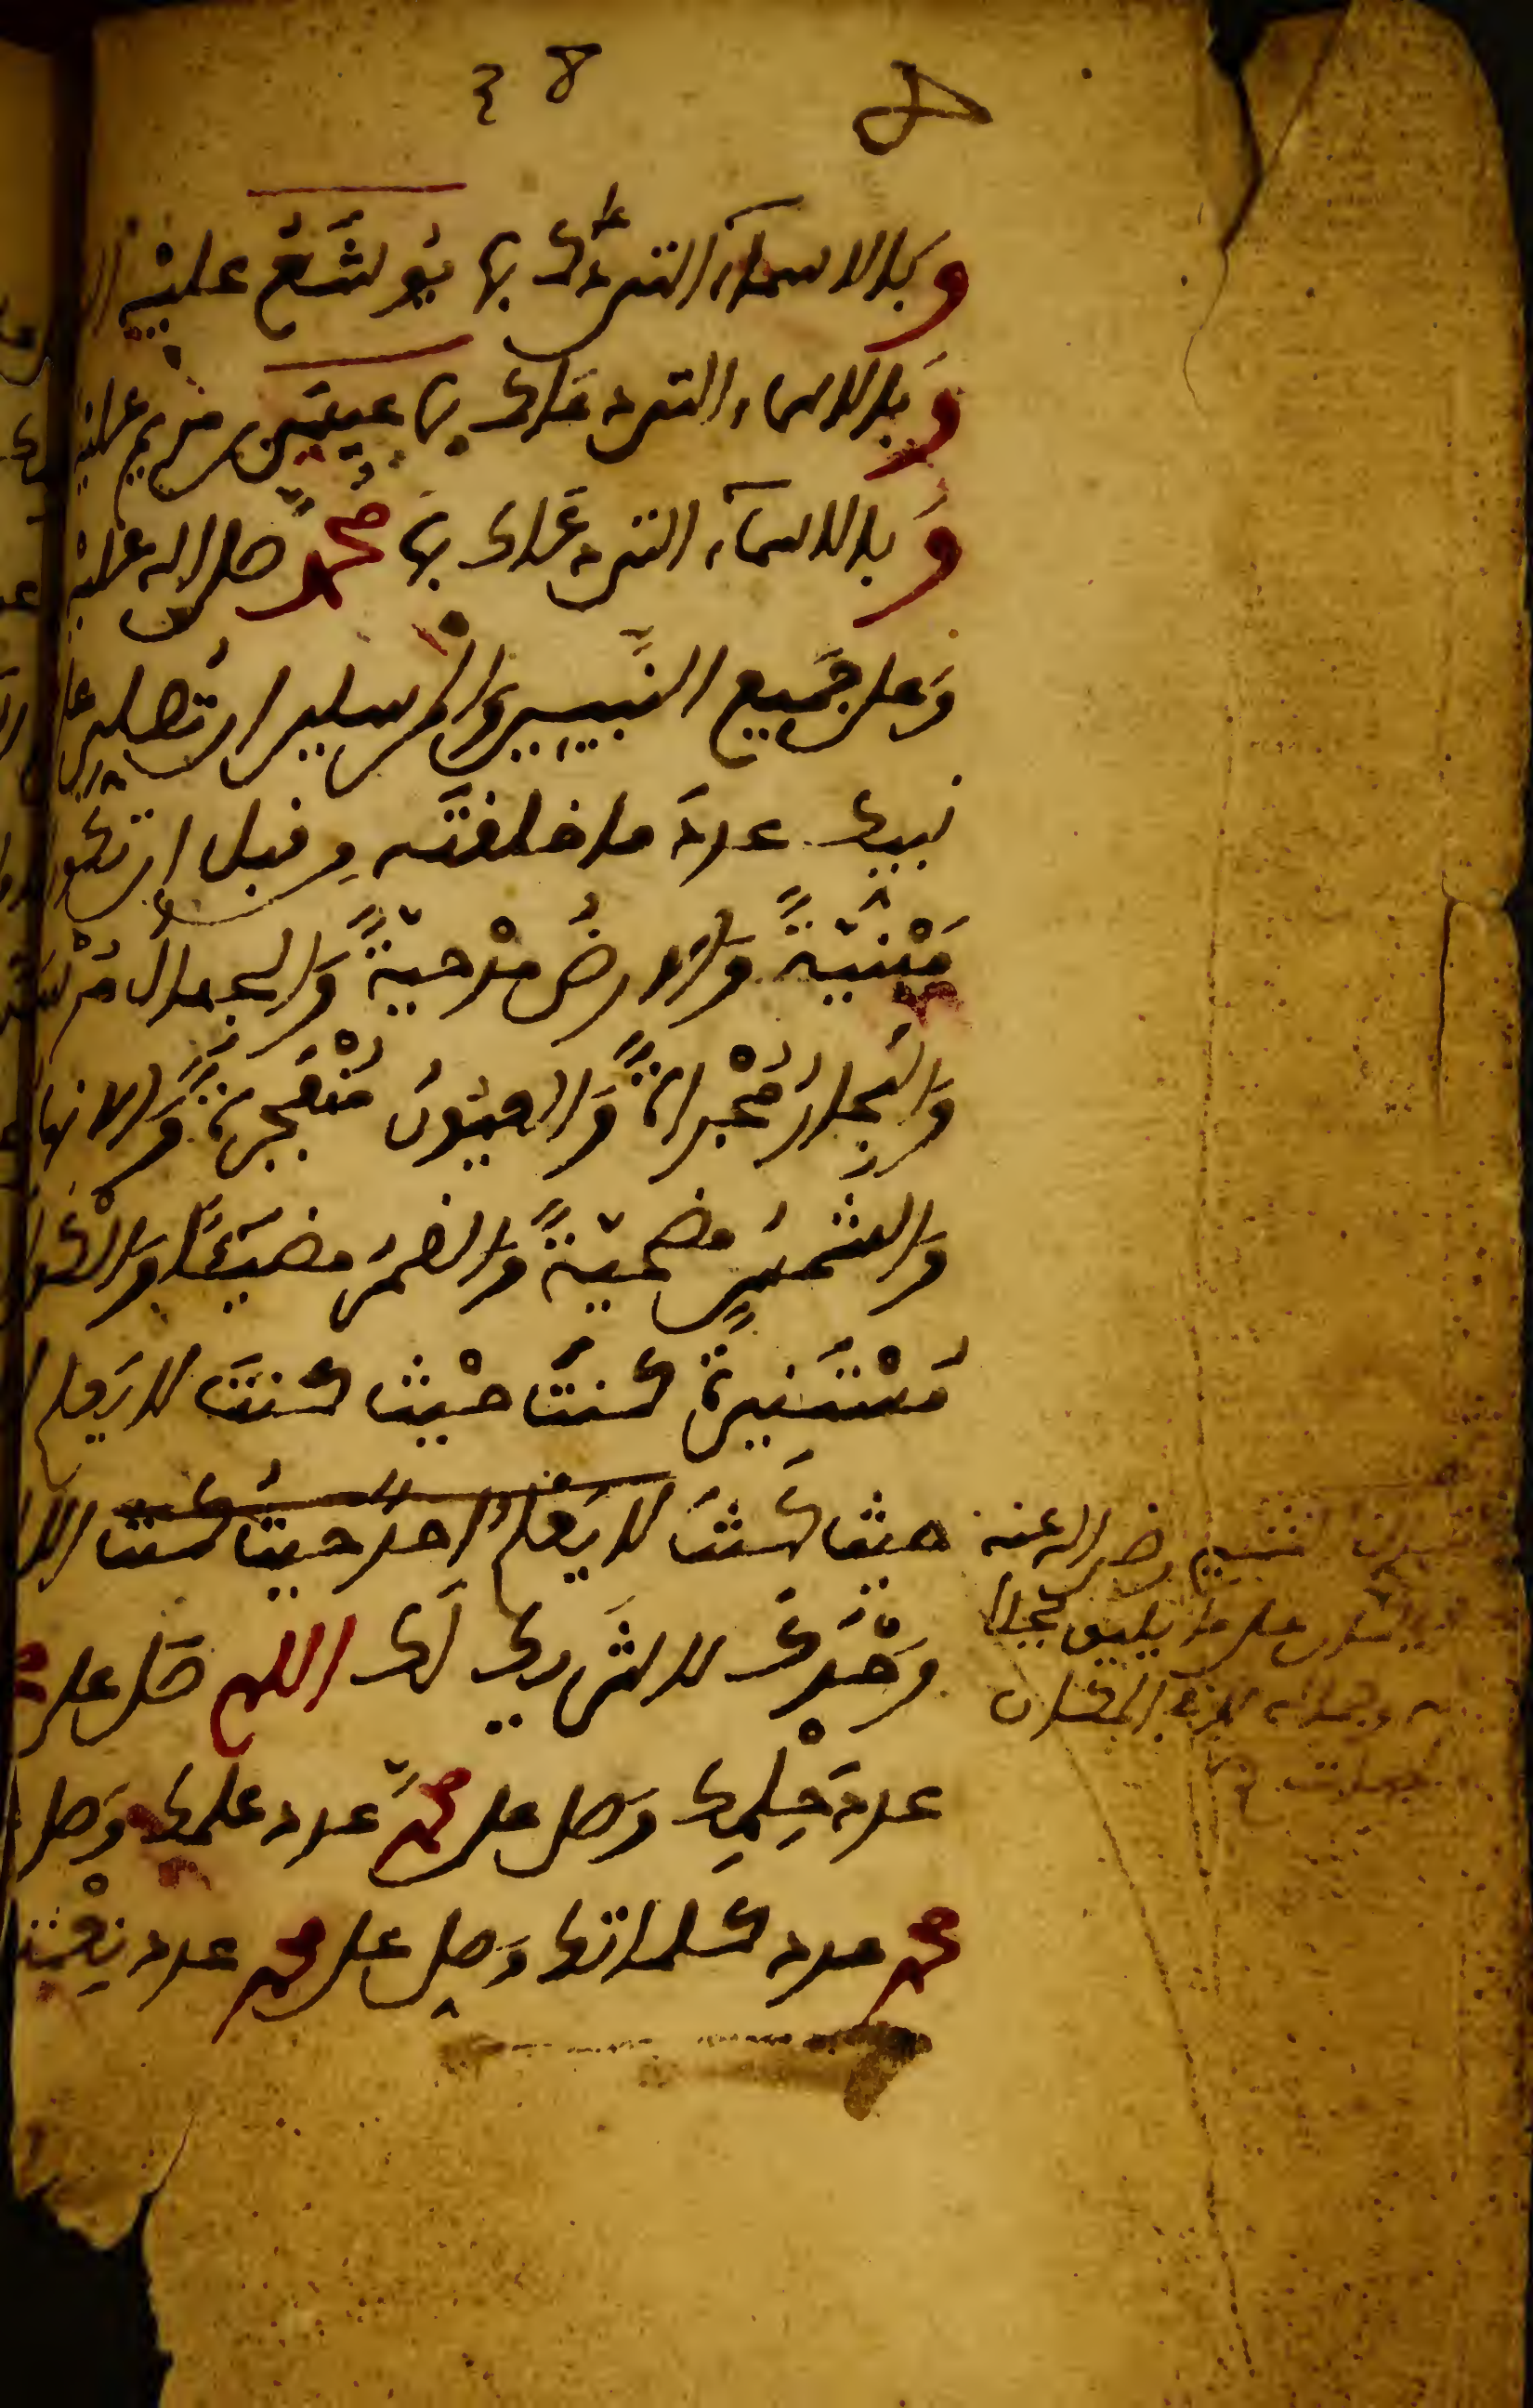 ٤٨
وَبالاسمآء التي دعاك بها يُوشَعُ عليْه
وَبالاسماء التي دعَاك بها عيسَى بن مريم عليْه
وَبالاسمآء التي دعَاك بهَا مُحمدٌ صلى الله عليْه
وَعلى جَميع النَّبيين والمرسلين ان تُصلي على
نبيك عددَ ما خلقتَه من قبل ان تكون
مَبْنيّةً والارضُ مدْحيّةً وَالجبال مُرْسَ
وَالبحارُ مُجْراةً وَالعيُونُ مُنْفجرةً وَالانها
وَالشمسُ مضحيّةً وَالقمرُ مضيئًا وَالكوا
مُسْتَنيرةً كنتَ حيْث كنتَ لا يَعلم
حيث كنتَ لا يَعلمُ احد حيثُ كنت الا
وَحْدكَ لا شَريك لَك اللهم صَل على
عددَ حِلْمِك وَصل على محمدٍ عدد علمك وَصل
محمد عدد كلماتك وَصل على محمد عدد نِعْمت
رضي الله عنه
على ما يليق